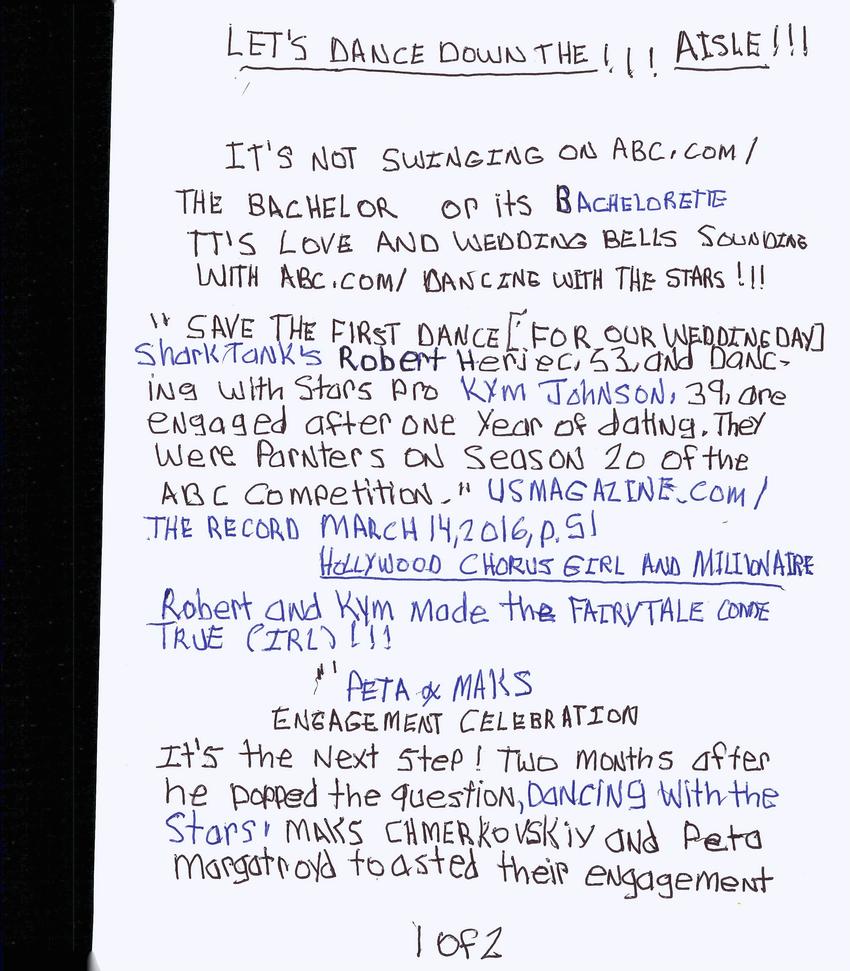 LET'S DANCE DOWN THE !!! AISLE!!!
IT'S NOT SWINGING ON ABC.COM/
THE BACHELOR or its BACHELORETTE
IT'S LOVE AND WEDDING BELLS SOUNDING
WITH ABC.COM/ DANCING WITH THE STARS!!!
" SAVE THE FIRST DANCE [FOR OUR WEDDING DAY]
Shark Tank's Robert Herjec, 53, and Danc-
ing with Stars pro KYM JOHNSON, 39, are
engaged after one year of dating. They
were Parnters on Season 20 of the
ABC Competition." USMAGAZINE.COM/
THE RECORD MARCH 14, 2016, p. 51
HOLLYWOOD CHORUS GIRL AND MILIONAIRE
Robert and Kym made the FAIRYTALE COME
TRUE (IRL)!!!
" PETA & MAKS
ENGAGEMENT CELEBRATION
It's the Next Step! Two months after
he popped the question, DANCING With the
Stars' MAKS CHMERKOVSKiy and Peta
Margatroyd toasted their engagement
1 of 2